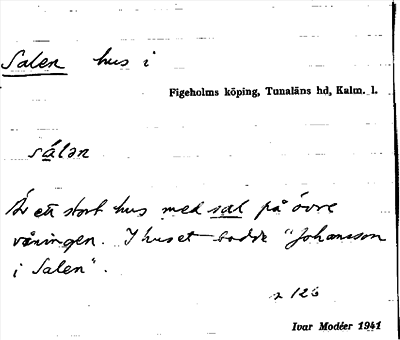 Salen hus i
Figeholms köping, Tunaläns hd, Kalm. l.
sálən
Är ett stort hus med sal på övre
våningen. I huset bodde "Johansson
i Salen".
s 126
Ivar Modéer 1941